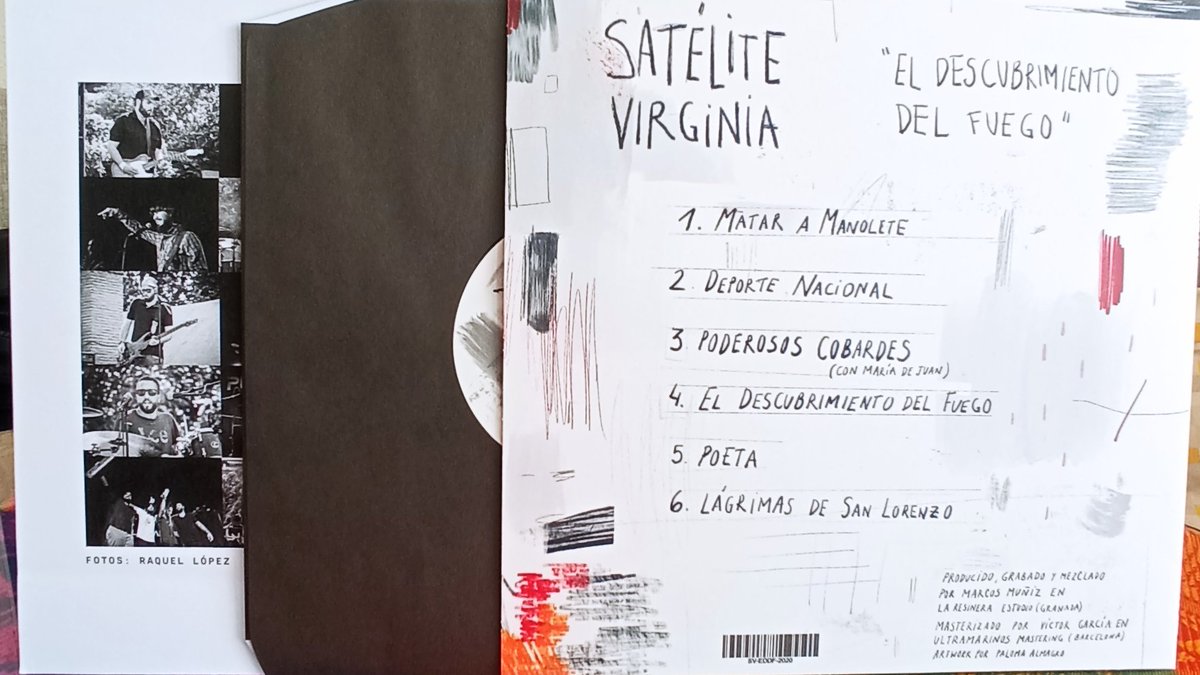 SATÉLITE
VIRGINIA
"EL DESCUBRIMIENTO
DEL FUEGO"
1. MATAR A MANOLETE
2. DEPORTE NACIONAL
3. PODEROSOS COBARDES
(CON MARÍA DE JUAN)
4. EL DESCUBRIMIENTO DEL FUEGO
5. POETA
6. LÁGRIMAS DE SAN LORENZO
PRODUCIDO, GRABADO Y MEZCLADO
POR MARCOS MUÑIZ EN
LA RESINERA ESTUDIO (GRANADA)
MASTERIZADO POR VÍCTOR GARCÍA EN
ULTRAMARINOS MASTERING (BARCELONA)
ARTWORK POR PALOMA ALMAGRO
SV-EDDF-2020
FOTOS: RAQUEL LÓPEZ